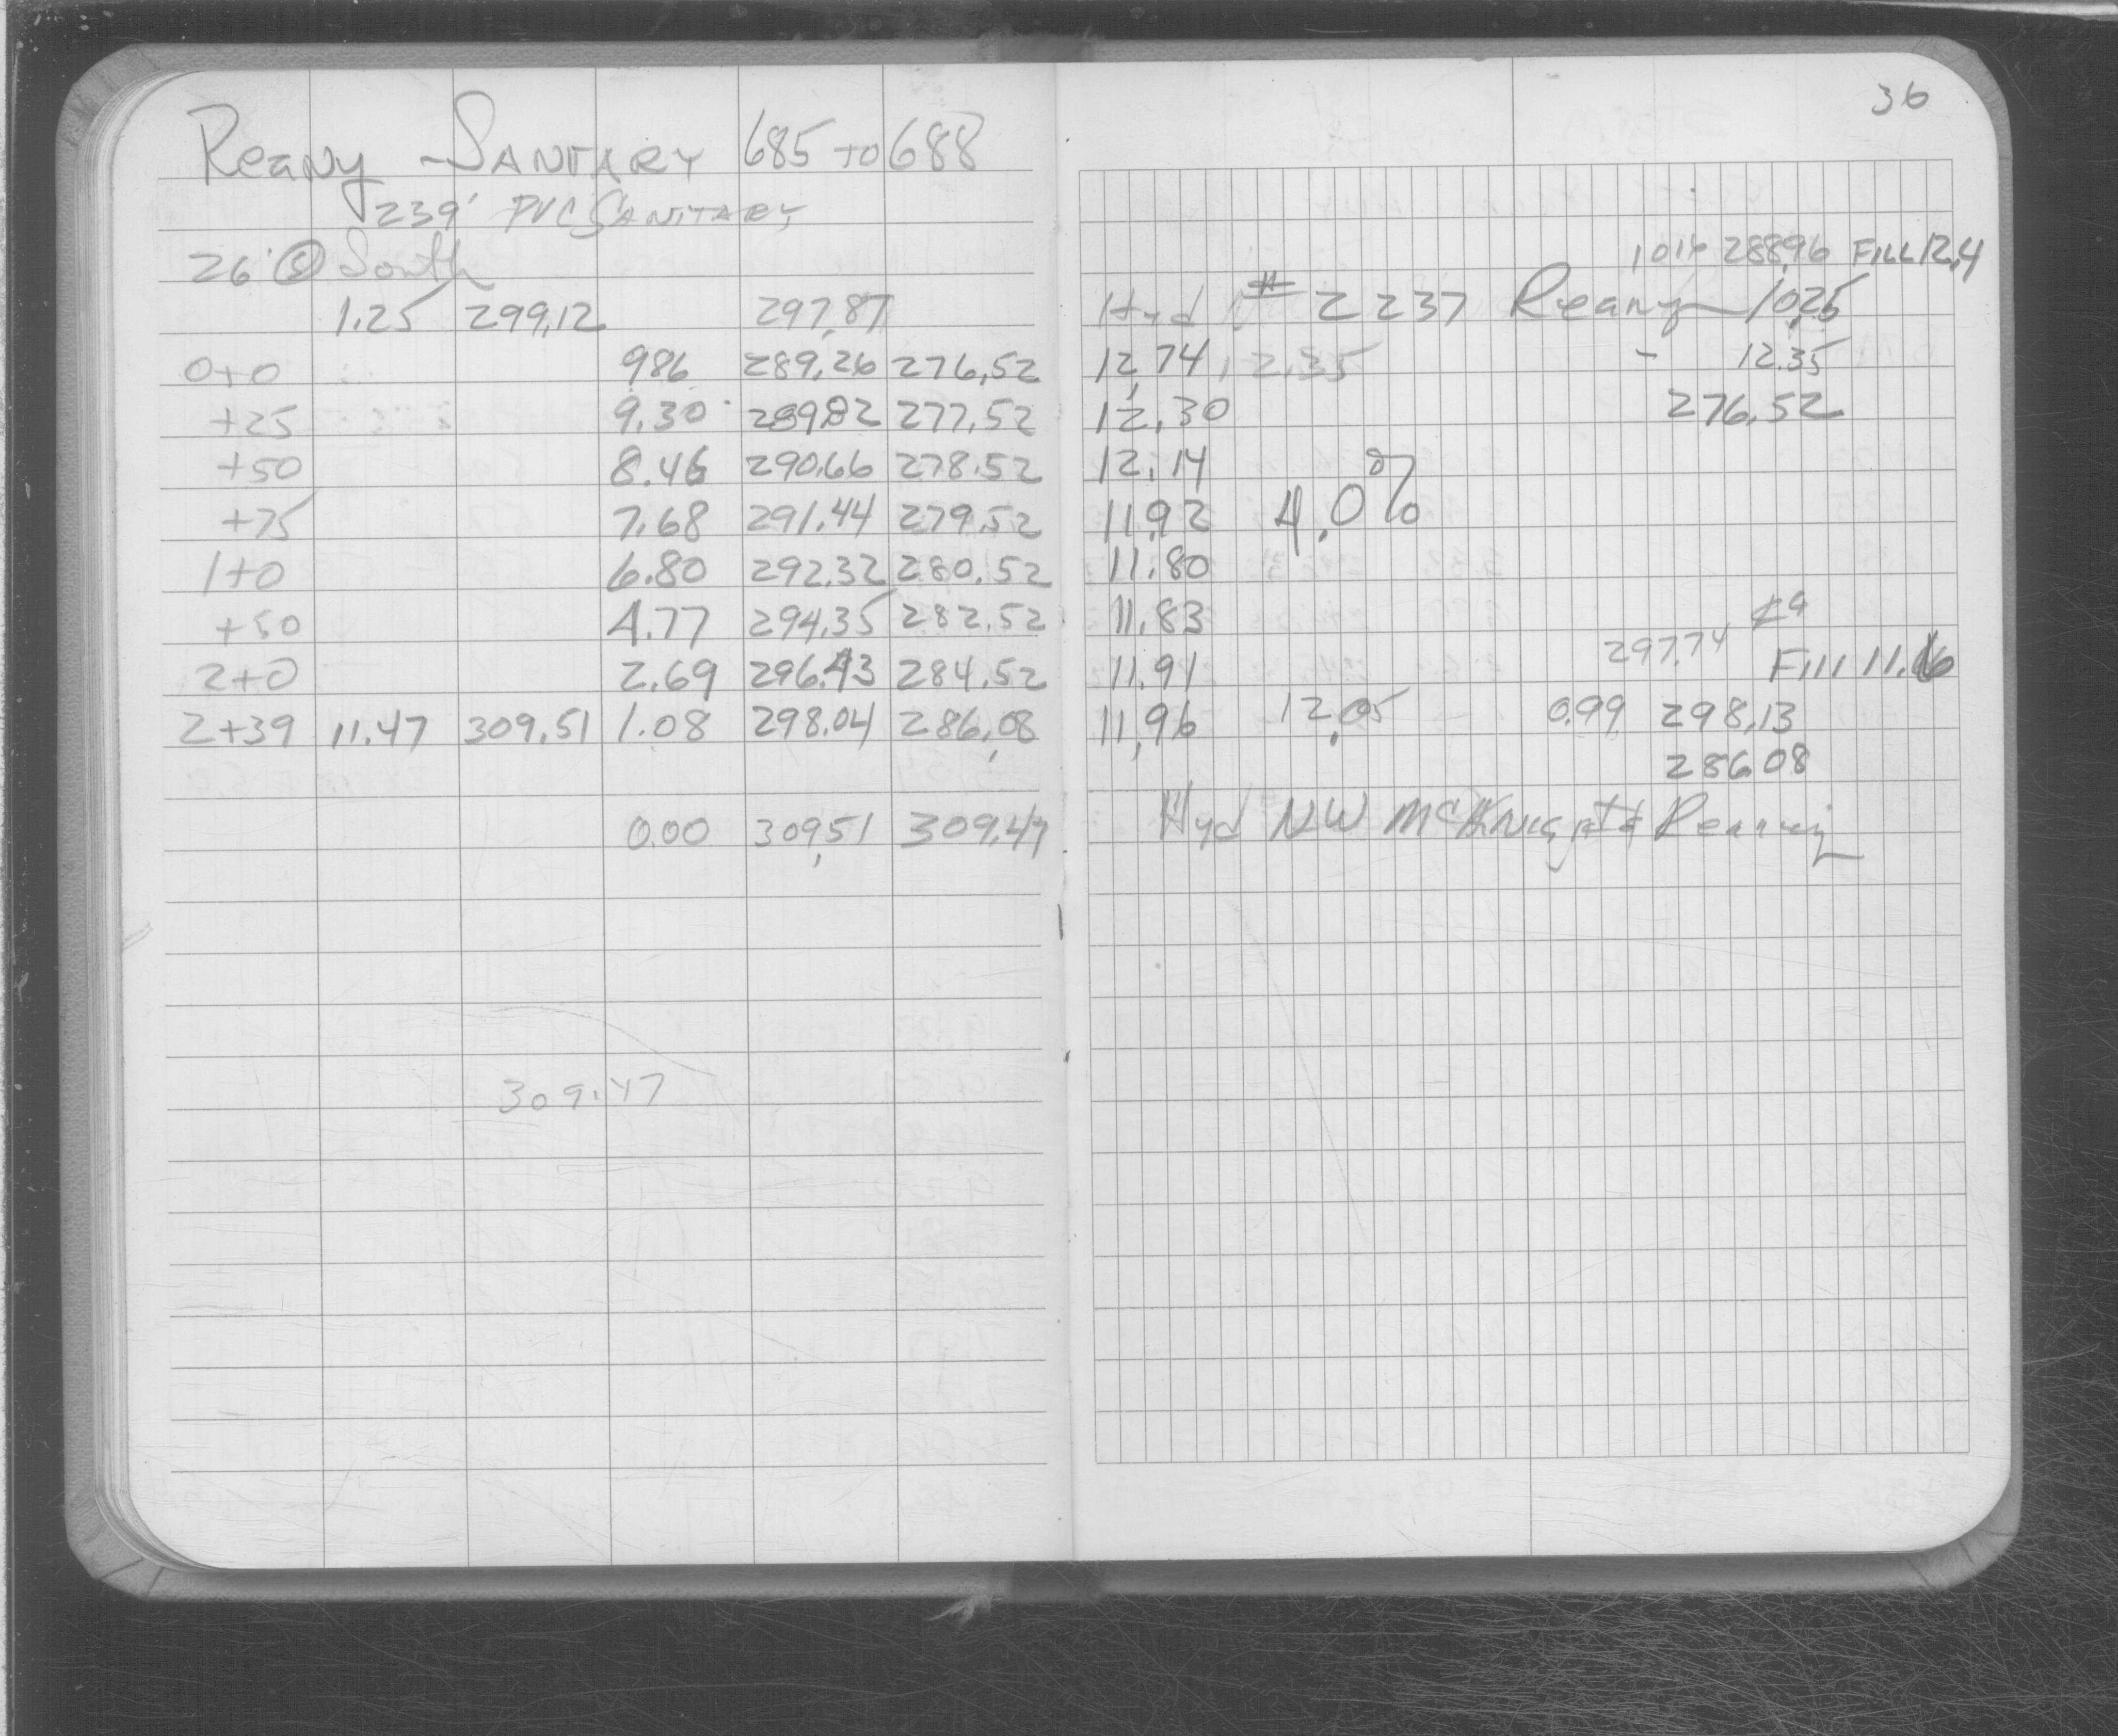 36
Reany - SANITARY 685 to 688
239' PVC SANITARY
26' @ South
1014 288.96 FILL 12.4
1.25 299.12 297.87 Hyd # 2237 Reany 10.25
0+0 986 289.26 276.52 12.74 12.35 - 12.35
+25 9.30 289.82 277.52 12.30 276.52
+50 8.46 290.66 278.52 12.14
+75 7.68 291.44 279.52 11.92 4.0%
1+0 6.80 292.32 280.52 11.80
+50 4.77 294.35 282.52 11.83
297.74
2+0 2.69 296.43 284.52 11.91 Fill 11.16
2+39 11.47 309.51 1.08 298.04 286.08 11.96 12.05 0.99 298.13
286.08
0.00 309.51 309.47 Hyd NW McKnight & Reaney
309.47